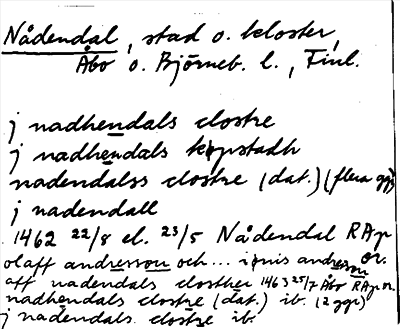 Nådendal, stad o. kloster,
Åbo o. Björneb. l., Finl.
j nadhendals clostre
j nadhendals köpstadh
nadendalss clostre (dat.) (flera ggr)
j nadendall
1462 22/8 el. 23/5 Nådendal RAp or.
olaff andersson och... ionis andersson
aff nadendals closther 1463 25/7 Åbo RAp or.
nadhendals clostre (dat.) ib. (2 ggr)
j nadendals clostre ib.